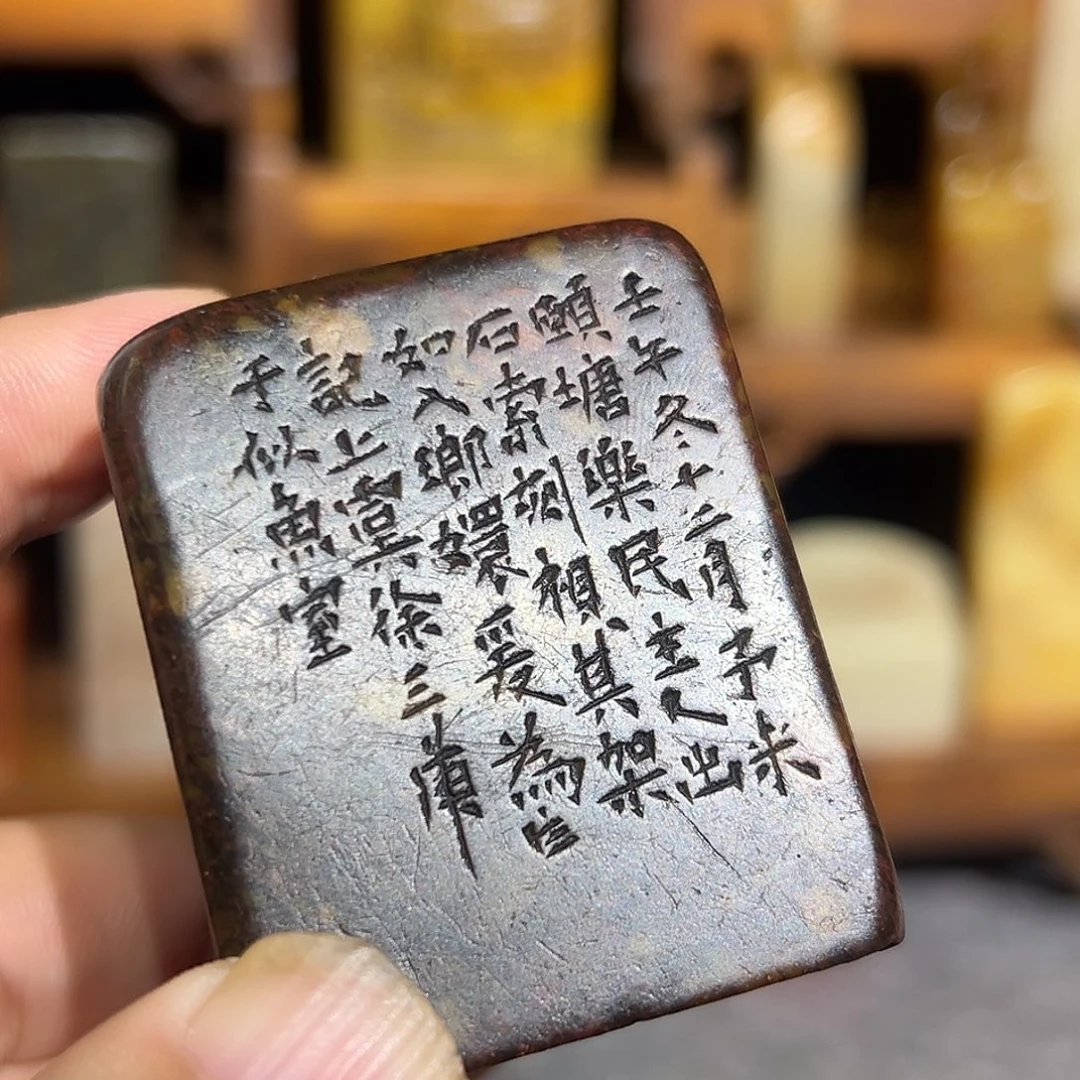 壬午冬十二月予来
頤塘樂民主人出
石索刻視其架
如入鄉嬛爰為
記上虞徐三庚
于似魚室